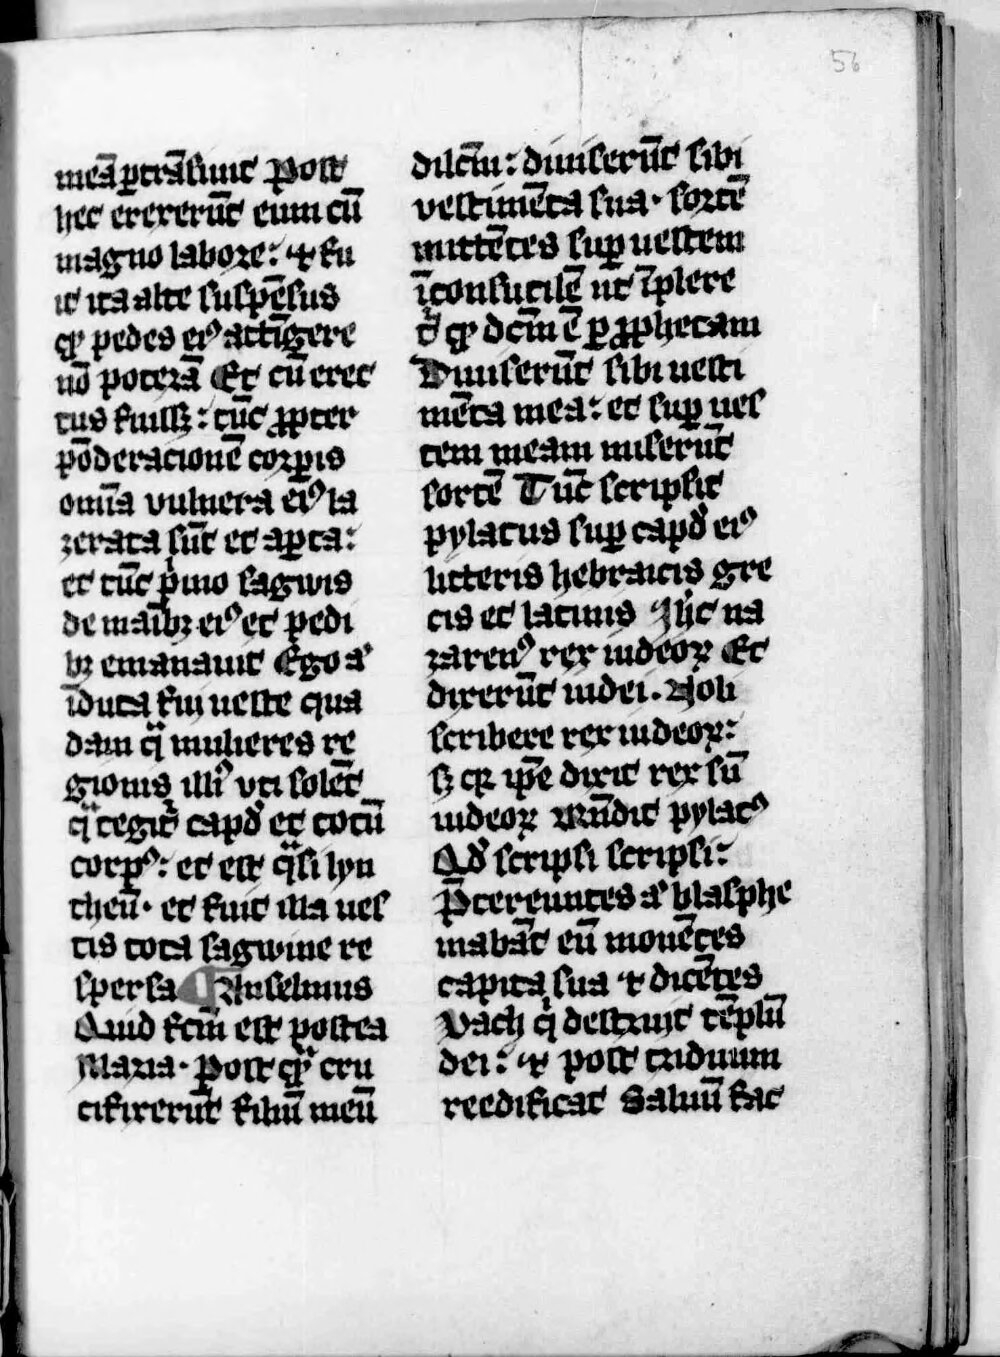 56
meā ꝑtrāsiuit Post
hec erexerūt eum cū
magno labore: ⁊ fu
it ita alte suspēsus
ꝙ pedes eiꝰ attīgere
nō poterā Et cū erec
tus fuissꝫ: tūc ꝓpter
pōderacionē corꝑis
omīa vulnera eiꝰ la
zerata sūt et aꝑta:
et tūc pͥmo sagwis
de maībꝫ eiꝰ et pedi
bꝫ emanauit Ego aͫ
īduta fui ueste qua
dam qͣ mulieres re
gionis illiꝰ vti solēt
qͣ tegitᷣ capđ et totū
corpꝰ: et est qͣsi lyn
theū· et fuit illa ues
tis tota sagwine re
spersa ¶ Anselmus
Quid fcm̄ est postea
Maria· Post ꝙͣ cru
cifixerūt filiū meū
dilcm̄: diuiserūt sibi
vestimēta sua· sortē
mittētes suꝑ uestem
īconsutilē ut īplere
tᷣ ꝙ dcm̄ ē ꝑ ꝓphetam
Diuiserūt sibi uesti
mēta mea: et suꝑ ues
tem meam miserūt
sortē Tūc scripsit
pylatus suꝑ capđ eiꝰ
litteris hebraicis gre
cis et latinis Ihc̄ na
zarenꝰ rex iudeoꝝ Et
dixerūt iudei. Noli
scribere rex iudeoꝝ:
sꝫ qꝛ ip̄e dixit rex sū
iudeoꝝ Rn̄dit pylatꝰ
Qđ scripsi scripsi:
P̄tereuntes aͫ blasphe
mabāt eū mouētes
capita sua ⁊ dicētes
Vach qͥ destruit tēplū
dei: ⁊ post triduum
reedificat Saluū fac